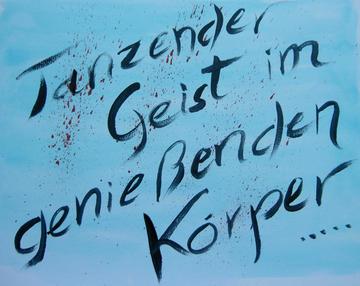 Tanzender
Geist im
genießenden
Körper.....